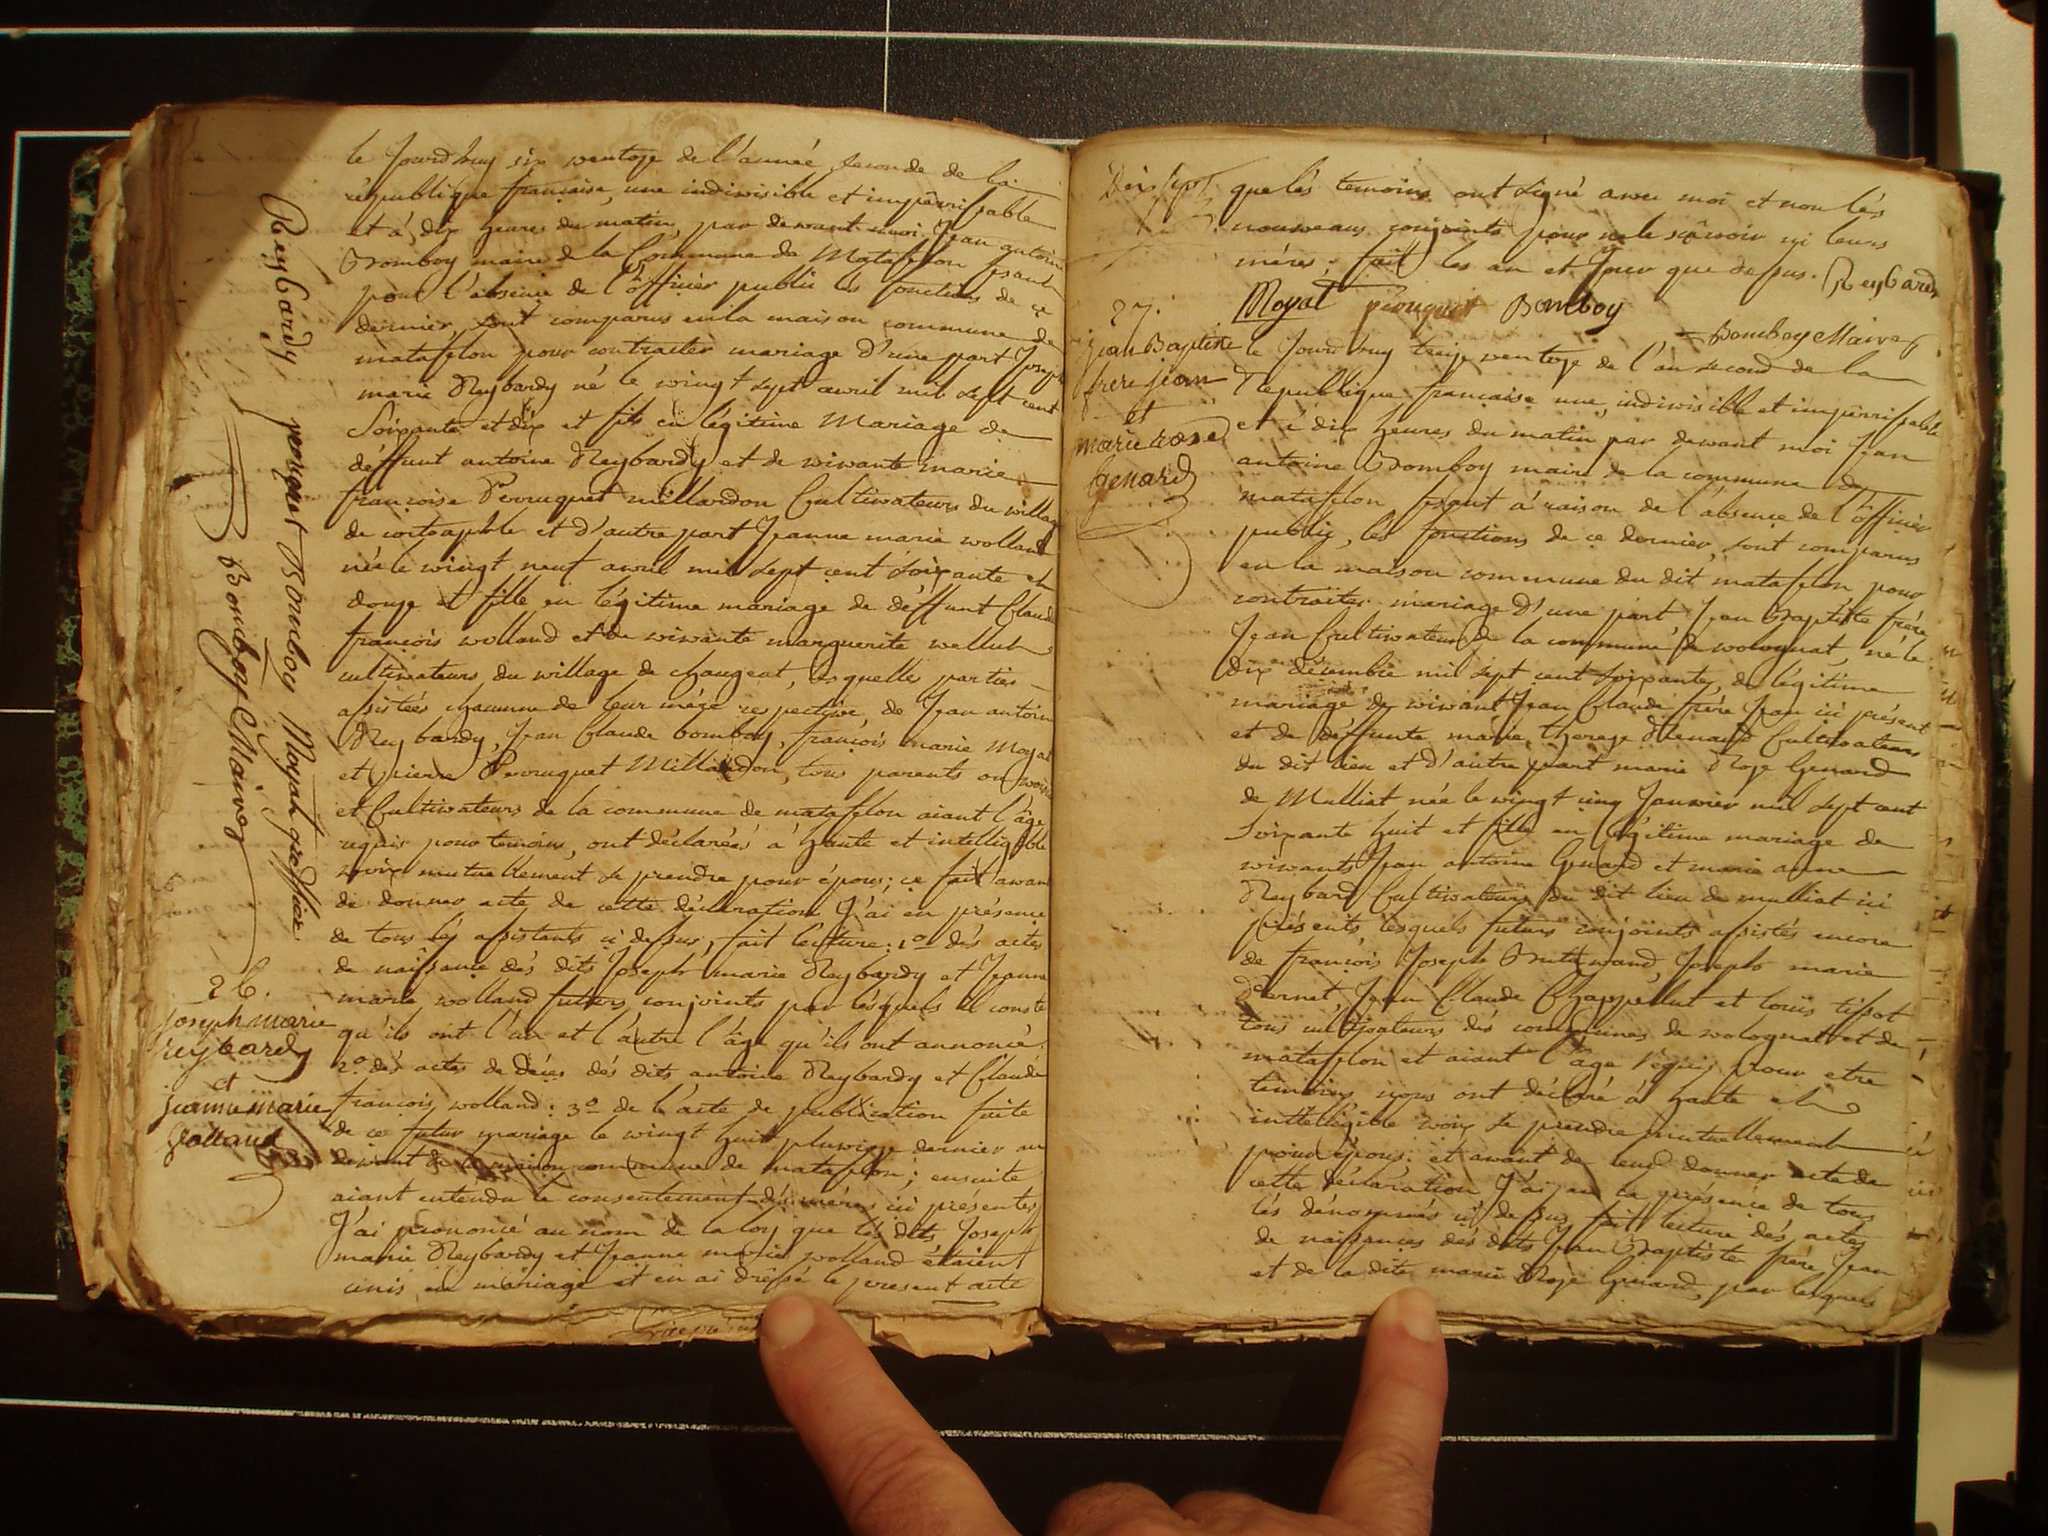 le Jourdhuy six ventose de l'année seconde de la
république française, une indivisible et impérrissable
et à dix heures du matin, par devant moi Jean antoine
Bomboy maire de la Commune de Matafflon fesant
pour l'absence de l'officier public les fonctions de ce
dernier, sont comparus en la maison commune de
matafflon pour contracter mariage d'une part Joseph
marie Reybardy né le vingt sept avril mil sept cent
Soixante et dix et fils en légitime Mariage de
déffunt antoine Reybardy et de vivante marie
françoise Perruquet millardon Cultivateurs du village
de et d'autre part Jeanne marie wolland
née le vingt neuf avril mil sept cent soixante et
douze et fille en légitime mariage de déffunt Claude
françois wolland et de vivante marguerite
cultivateurs du village de changeat, lesquelles parties
assistées chacune de leur mére respective, de Jean antoine
Reybardy, Jean Claude bomboy, françois marie Moyat
et pierre Perruquet Millardon, tous parents ou voisins
et Cultivateurs de la commune de matafflon aiant l'âge
requis pour temoins, ont déclarés à haute et intelligible
voix mutuellement se prendre pour époux; ce fait avant
de donner acte de cette déclaration J'ai en présence
de tous les assistants ci dessus, fait lecture: 1º des actes
de naissance dés dits Joseph marie Reybardy et Jeanne
marie wolland futurs conjoints par lésquels il conste
qu'ils ont l'un et l'autre l'âge qu'ils ont annoncé
2º dés actes de décès dés dits antoine Reybardy et Claude
françois wolland: 3º de l'acte de publication faite
de ce futur mariage le vingt huit pluviose dernier au
devant de la maison commune de matafflon; ensuite
aiant entendu le consentement dés méres ici présentes
J'ai prononcé au nom de la loy que lés dits Joseph
marie Reybardy et Jeanne marie wolland étaient
unis en mariage et en ai dréssé le present acte
Reybardy perruquet Bomboy Moyat greffier
Bomboy Maire
26.
joseph marie
reybardy
et
jeanne marie
Volland
Dix sept
que lés temoins ont signé avec moi et non lés
nouveaux conjoints pour ne le sçavoir ni leurs
méres. fait les an et Jour que dessus. Reybardy
Moyat perruquet Bomboy
Bomboy Maire
27.
jean Baptiste
frere jean
et
marie rose
Genard
le Jourdhuy treize ventose de l'an second de la
République française une, indivisible et impérrissable
et à dix heures du matin par devant moi Jean
antoine Bomboy maire de la commune de
matafflon fesant à raison de l'absence de l'officier
public, les fonctions de ce dernier, sont comparus
en la maison commune du dit matafflon pour
contracter mariage d'une part, Jean Baptiste frére
Jean Cultivateur de la commune de wolognat, né le
dix décembre mil sept cent soixante, de légitime
mariage de vivant Jean Claude frére Jean ici présent
et de déffunte marie thereze Renaud Cultivateurs
du dit lieu et d'autre part marie Roze Genard
de Mulliat née le vingt cinq Janvier mil sept cent
soixante huit et fille en légitime mariage de
vivants Jean antoine Genard et marie anne
Reybard Cultivateurs du dit lieu de mulliat ici
présents lesquels futurs conjoints assistés encore
de françois Joseph Joseph marie
Jean Claude Chappellut et louis tissot
tous cultivateurs dés communes de wolognat et de
matafflon et aiant l'âge réquis pour etre
temoins, nous ont déclaré à haute et
intelligible voix se prendre mutuellement
pour époux: et avant de leur donner acte de
cette déclaration J'ai en la présence de tous
lés dénommés ci dessus fait lecture dés actes
de naissances dés dits Jean Baptiste frére Jean
et de la dite marie Roze Genard, par lesquels